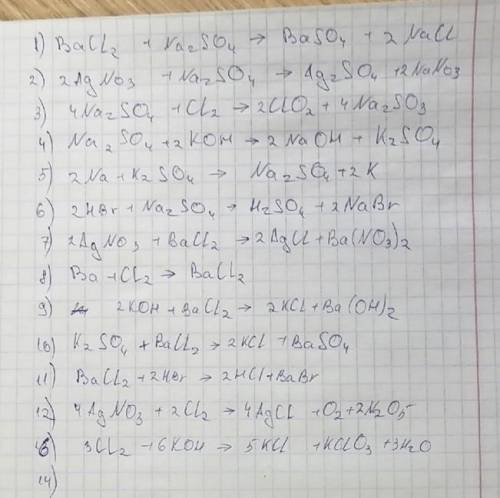 1) BaCl₂ + Na₂SO₄ → BaSO₄ + 2 NaCl
2) 2AgNO₃ + Na₂SO₄ → Ag₂SO₄ + 2NaNO₃
3) 4Na₂SO₄ + Cl₂ → 2ClO₂ + 4Na₂SO₃
4) Na₂SO₄ + 2KOH → 2NaOH + K₂SO₄
5) 2Na + K₂SO₄ → Na₂SO₄ + 2K
6) 2HBr + Na₂SO₄ → H₂SO₄ + 2NaBr
7) 2AgNO₃ + BaCl₂ → 2AgCl + Ba(NO₃)₂
8) Ba + Cl₂ → BaCl₂
9) 2KOH + BaCl₂ → 2KCl + Ba(OH)₂
10) K₂SO₄ + BaCl₂ → 2KCl + BaSO₄
11) BaCl₂ + 2HBr → 2HCl + BaBr
12) 4AgNO₃ + 2Cl₂ → 4AgCl + O₂ + 2N₂O₅
3Cl₂ + 6KOH → 5KCl + KClO₃ + 3H₂O
14)